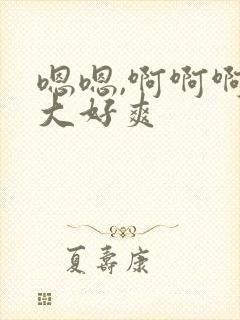 嗯嗯,啊啊啊
大好爽
夏寿康